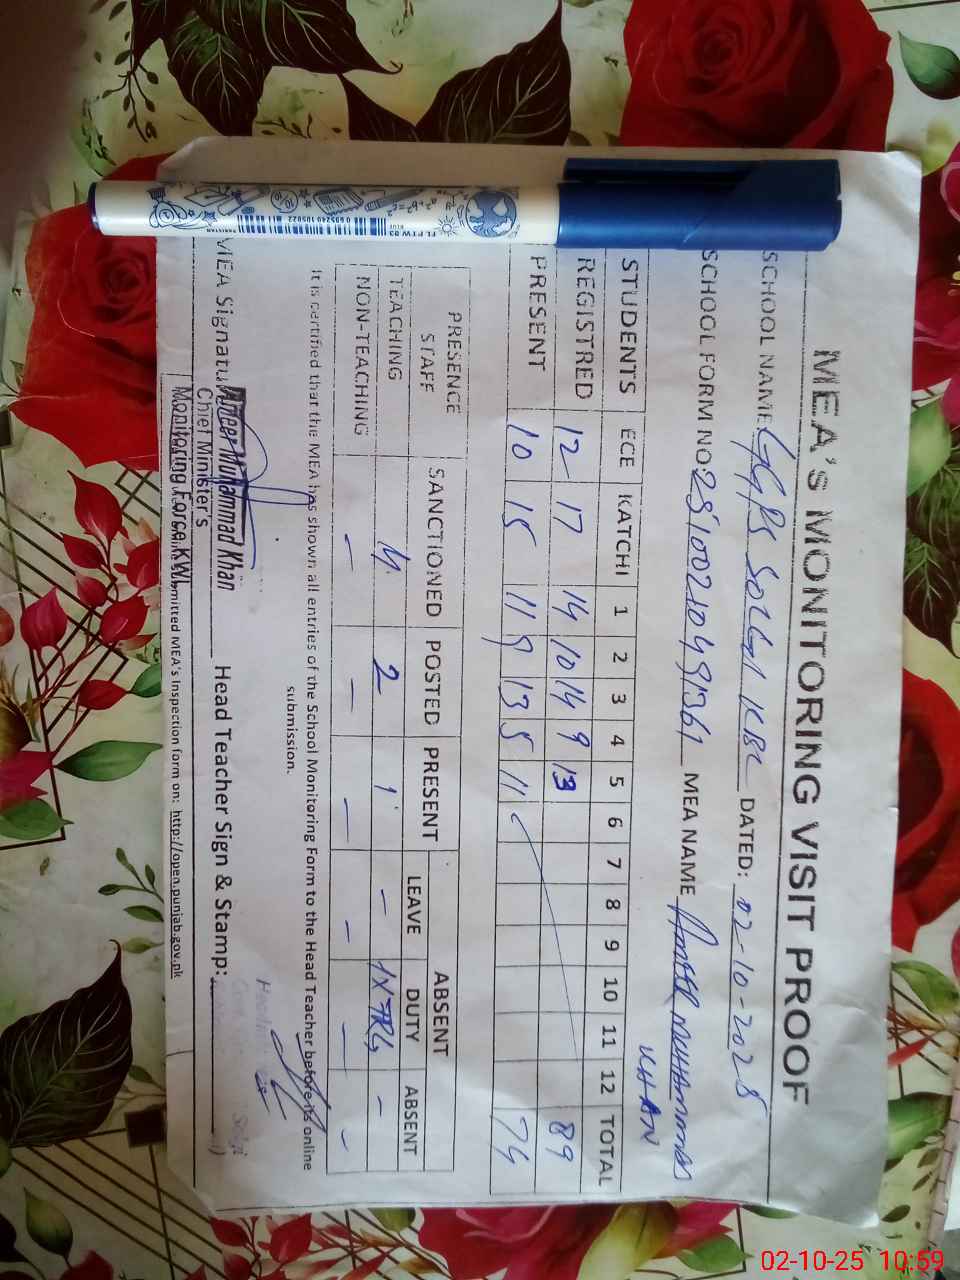 MEA'S MONITORING VISIT PROOF
SCHOOL NAME GGPS DATED: 02-10-2025
SCHOOL FORM NO: MEA NAME AMEER MUHAMMAD
KHAN
STUDENTS ECE KATCHI 1 2 3 4 5 6 7 8 9 10 11 12 TOTAL
REGISTRED 12 17 14 10 14 9 13 89
PRESENT 10 15 11 9 13 5 11 74
PRESENCE STAFF SANCTIONED POSTED PRESENT ABSENT
LEAVE DUTY ABSENT
TEACHING 4 2 1 - -
NON-TEACHING - - - - - -
It is certified that the MEA has shown all entries of the School Monitoring Form to the Head Teacher before its online
submission.
MEA Signatu Head Teacher Sign & Stamp:
Ameer Muhammad Khan
Chief Minister's
Monitoring Force KWL
mitted MEA's Inspection form on: http://open.punjab.gov.pk
FLPTW 83
BLUE
02-10-25 10:59